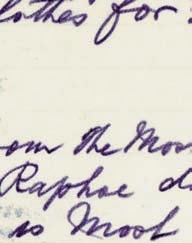 lothes for
om the Mos
Raphoe d
is Most